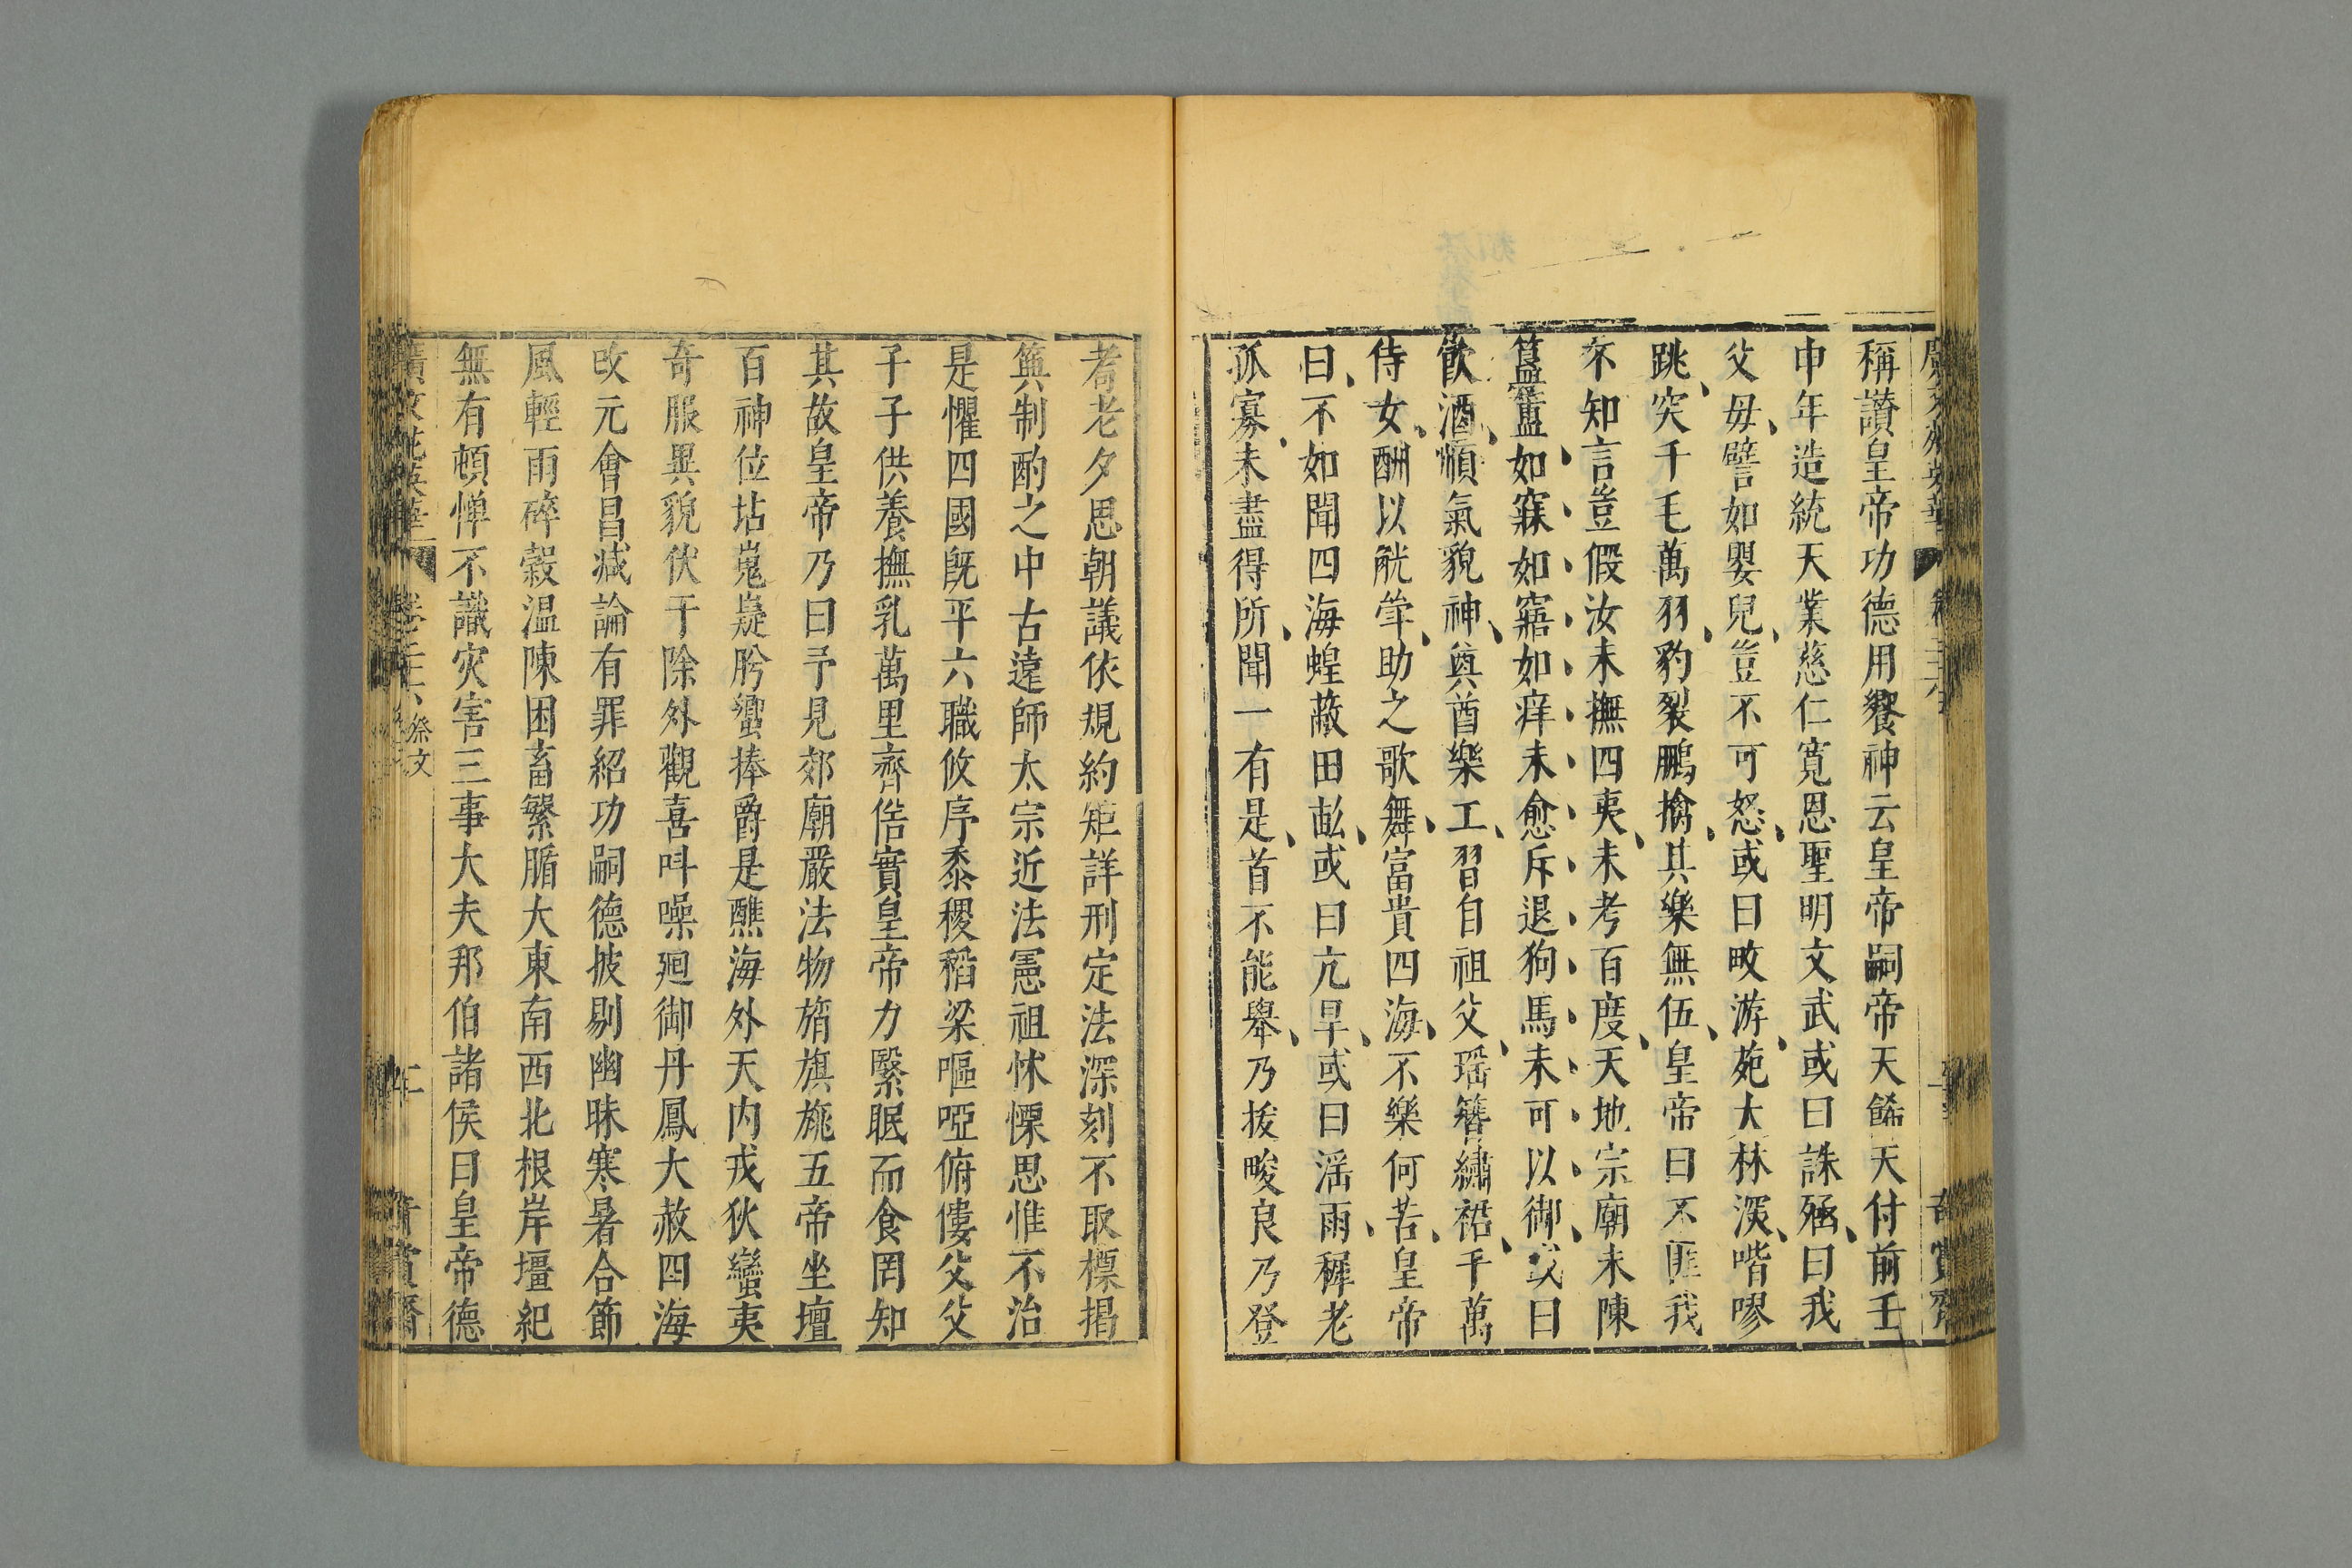 稱讃皇帝功德用饗神云皇帝嗣帝天餙天付前壬
申年造統天業慈仁寛恩聖明文武或曰誅殛曰我
父毋譬如嬰兒豈不可怒或曰畋游苑大林深喈嘐
跳突千毛萬羽豹裂鵬擒其樂無伍皇帝曰不匪我
不知言豈假汝未撫四夷未考百度天地宗廟未陳
簋簠如寐如寤如痒未愈斥退狗馬未可以御或曰
飲酒順氣貌神奠酋樂工習自祖父瑶簪繡裙千萬
侍女酬以觥筆助之歌舞富貴四海不樂何苦皇帝
曰不如聞四海蝗蔽田畆或曰亢旱或曰滛雨穉老
孤寡未盡得所聞一有是首不能舉乃拔畯良乃登
耉老夕思朝議依規約矩詳刑定法深刻不取標揭
與制酌之中古遠師太宗近法憲祖怵慄思惟不治
是懼四國旣平六職攸序黍稷稻梁嘔啞俯僂父父
子子供養撫乳萬里齊偕實皇帝力緊眠而食罔知
其故皇帝乃曰予見郊廟嚴法物旓旗旒五帝坐壇
百神位坫嵬嶷肸蠁捧爵是醮海外天内戎狄蠻夷
奇服異貌伏于除外觀喜呌噪廻御丹鳳大赦四海
改元會昌减論有罪紹功嗣德披剔幽昧寒暑合節
風輕雨碎穀温陳困畜繁腯大東南西北根岸壃紀
無有頓憚不識灾害三事大夫邦伯諸侯曰皇帝德
廣文苑英華 祭文